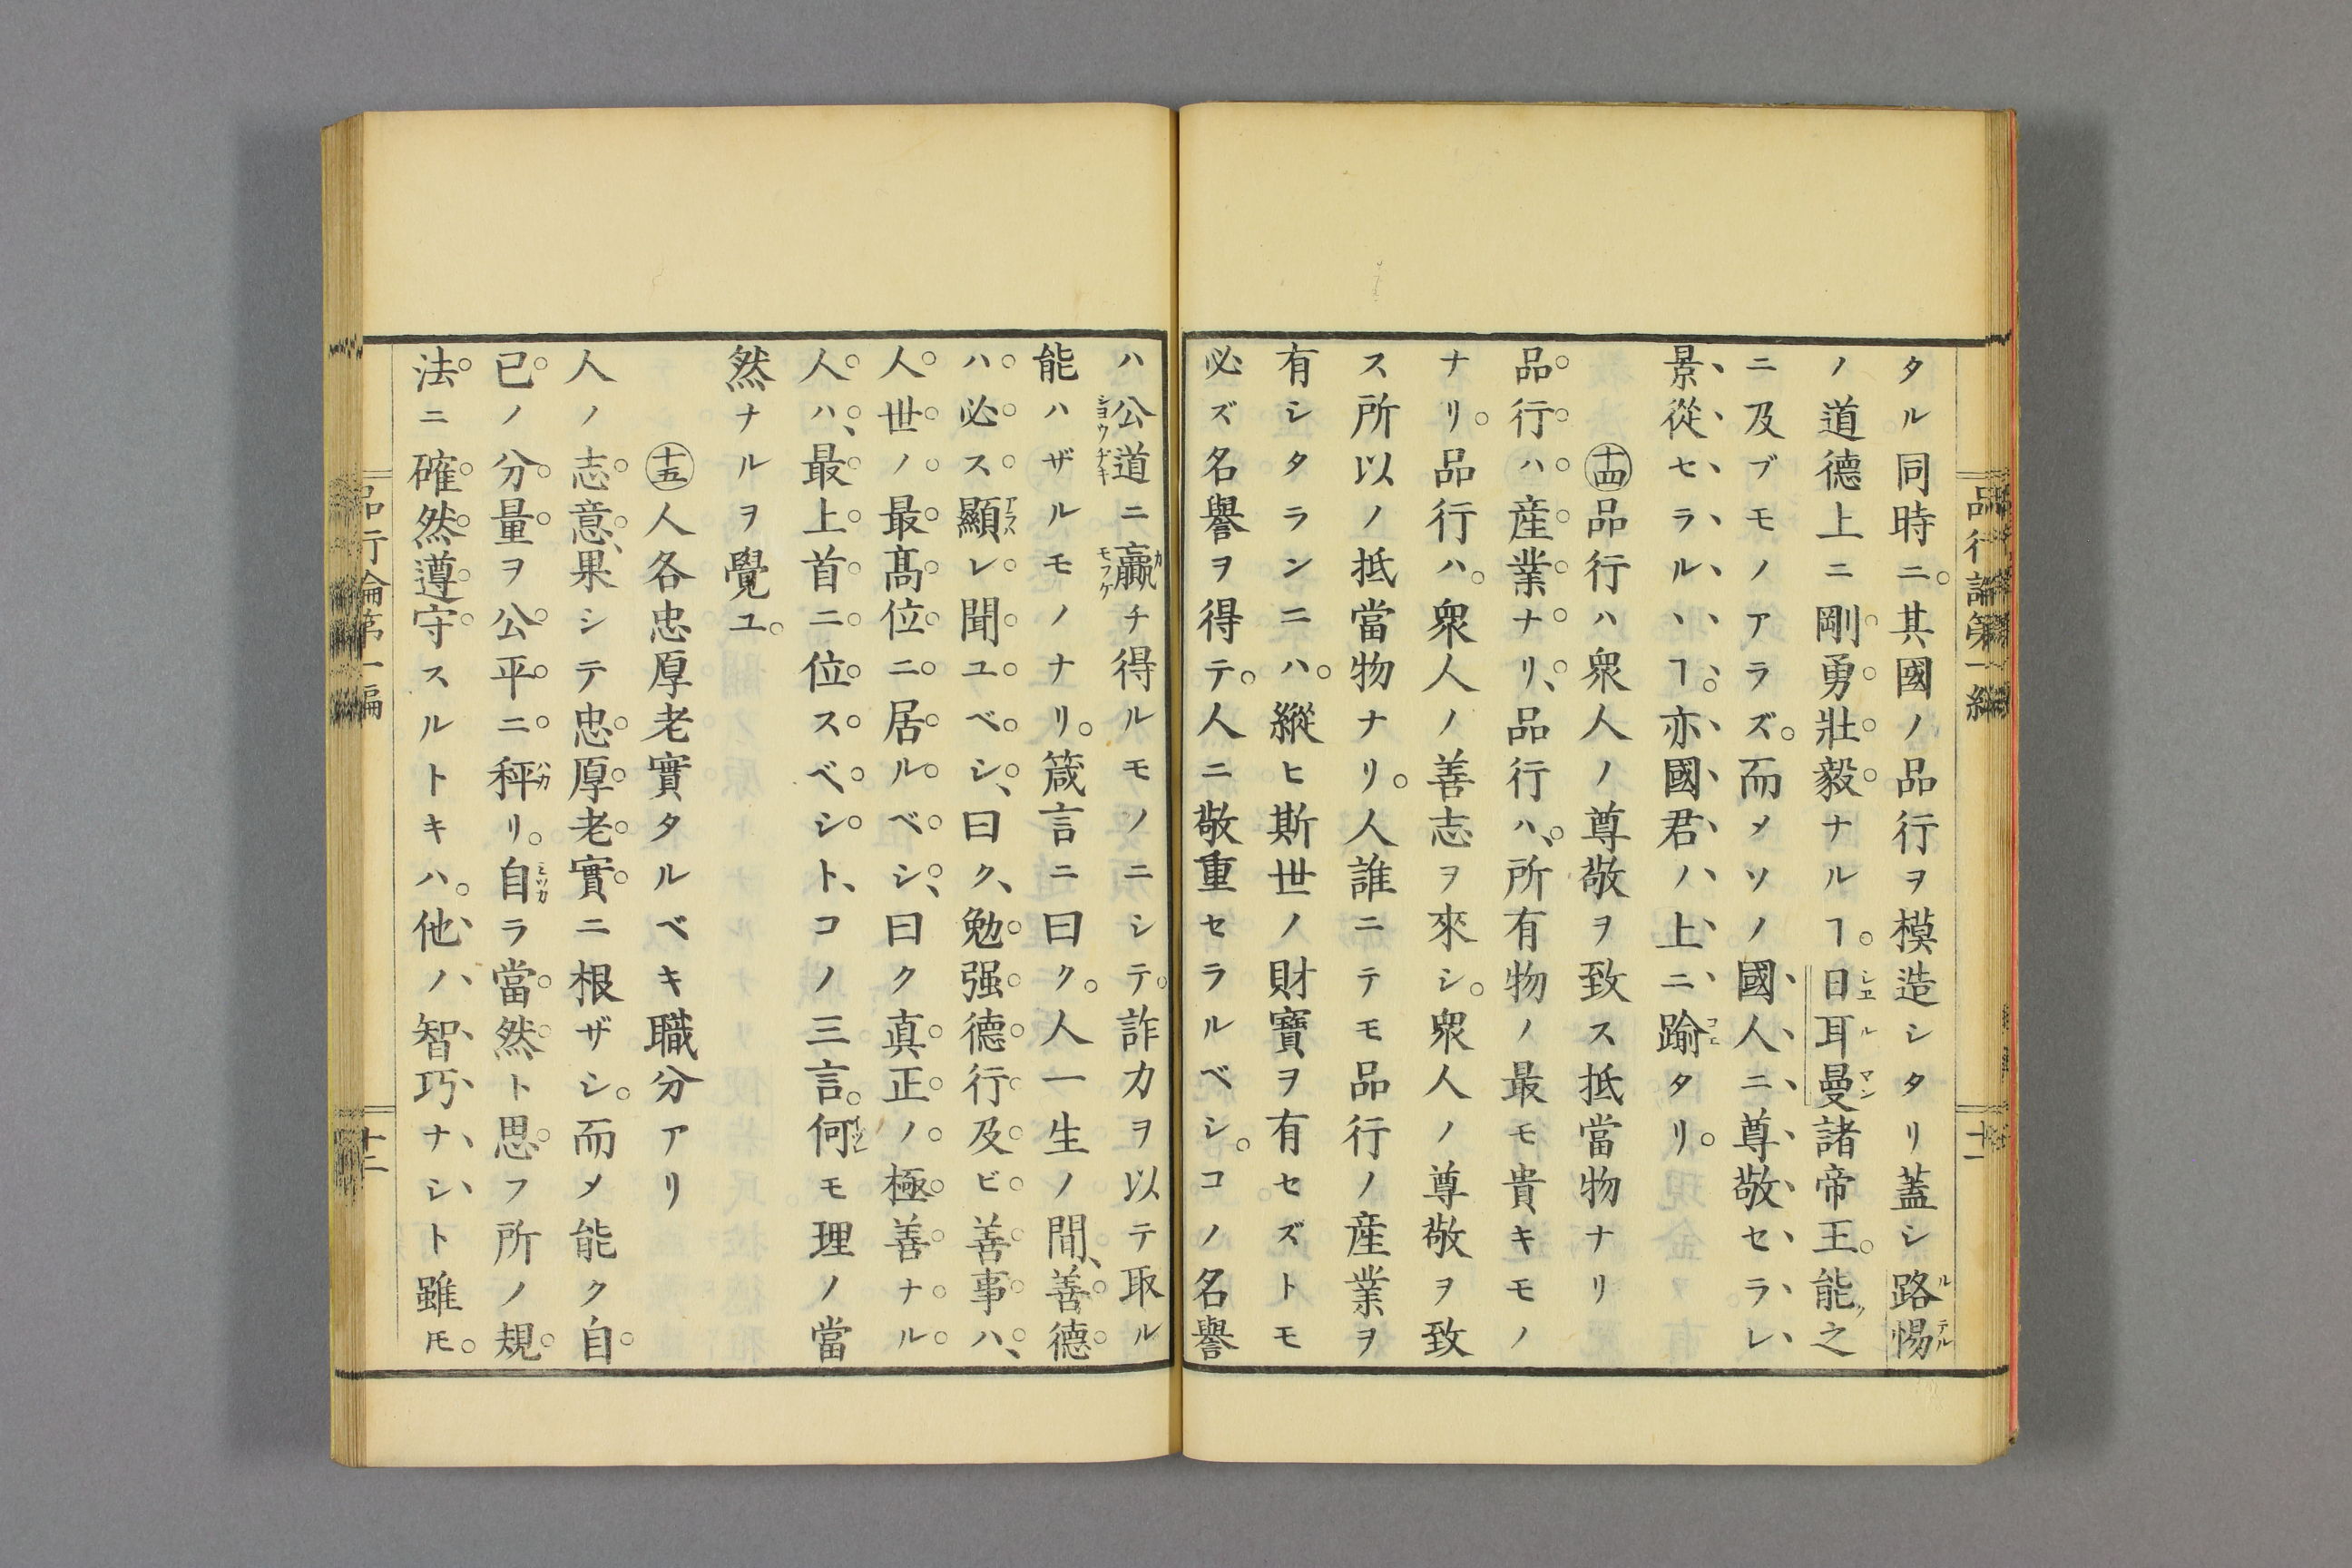 タル同時ニ。其國ノ品行ヲ模造シタリ蓋シ路惕
ノ道德上ニ剛勇壯毅ナルヿ。日耳曼諸帝王。能之
ニ及ブモノアラズ。而メソノ國人ニ尊敬セラレ
景從セラルヽヿ。亦國君ノ上ニ踰タリ。
㊉四品行ハ衆人ノ尊敬ヲ致ス抵當物ナリ
品行ハ産業ナリ、品行ハ、所有物ノ最モ貴キモノ
ナリ。品行ハ。衆人ノ善志ヲ來シ。衆人ノ尊敬ヲ致
ス所以ノ抵當物ナリ。人誰ニテモ品行ノ産業ヲ
有シタランニハ。縱ヒ斯世ノ財寶ヲ有セズトモ
必ズ名譽ヲ得テ。人ニ敬重セラルベシ。コノ名譽
品行論第一編
十一
ハ公道ニ贏チ得ルモノニシテ。詐力ヲ以テ取ル
能ハザルモノナリ。箴言ニ曰ク。人一生ノ間、善德
ハ必ス顯レ聞ユベシ、曰ク、勉强德行及ビ善事ハ、
人世ノ最髙位ニ居ルベシ、曰ク真正ノ極善ナル
人ハ、最上首ニ位スベシト、コノ三言。何モ理ノ當
然ナルヲ覺ユ。
㊉五人各忠厚老實タルベキ職分アリ
人ノ志意、果シテ忠厚老實ニ根ザシ。而メ能ク自
已ノ分量ヲ公平ニ秤リ。自ラ當然ト思フ所ノ規
法ニ確然遵守スルトキハ。他ノ智巧ナシト雖𪜈。
品行論第一編
十二